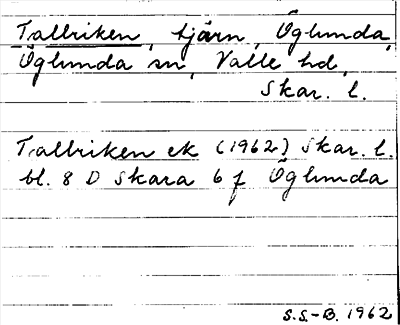 Tallriken, tjärn, Öglunda,
Öglunda sn, Valle hd,
Skar. l.
Tallriken ek (1962) Skar. l.
bl. 8 D Skara 6 f Öglunda
S.S.-B. 1962